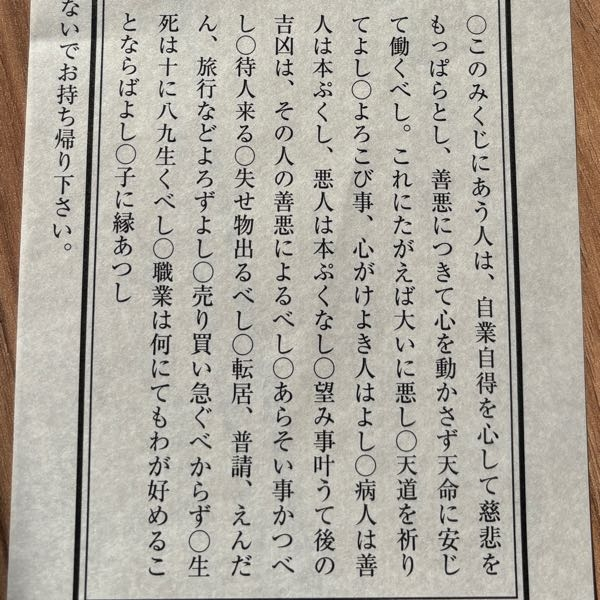 ○このみくじにあう人は、自業自得を心して慈悲を
もっぱらとし、善悪につきて心を動かさず天命に安じ
て働くべし。これにたがえば大いに悪し○天道を祈り
てよし○よろこび事、心がけよき人はよし○病人は善
人は本ぷくし、悪人は本ぷくなし○望み事叶うて後の
吉凶は、その人の善悪によるべし○あらそい事かつべ
し○待人来る○失せ物出るべし○転居、普請、えんだ
ん、旅行などよろずよし○売り買い急ぐべからず○生
死は十に八九生くべし○職業は何にてもわが好めるこ
とならばよし○子に縁あつし
ないでお持ち帰り下さい。